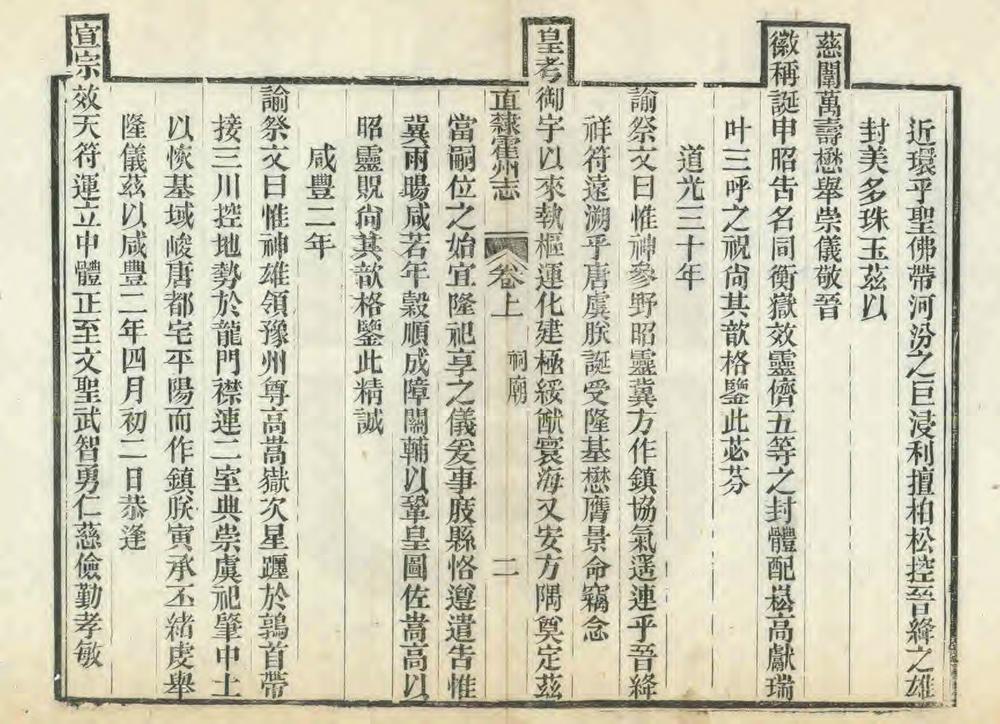 近環乎聖佛帶河汾之巨浸利擅柏松控晉絳之雄
封美多珠玉茲以
慈闈萬壽懋舉崇儀敬晉
徽稱誕申昭告名同衡嶽效靈儕五等之封體配崧高獻瑞
叶三呼之祝尙其歆格鑒此苾芬
道光三十年
諭祭文曰惟神參野昭靈冀方作鎮協氣遥連乎晉絳
祥符遠溯乎唐虞朕誕受隆基懋膺景命竊念
皇考御宇以來執樞運化建極綏猷寰海乂安方隅奠定茲
直隸霍州志 卷上 祠廟 二
當嗣位之始宜隆祀享之儀爰事庪縣恪遵遣吿惟
冀雨暘咸若年穀順成障關輔以鞏皇圖佐嵩高以
昭靈貺尙其歆格鑒此精誠
咸豐二年
諭祭文曰惟神雄領豫州尊高嵩嶽次星躔於鶉首帶
接三川控地勢於龍門襟連二室典崇虞祀肇中土
以恢基域峻唐都宅平陽而作鎮朕寅承丕緒虔舉
隆儀茲以咸豐二年四月初二日恭逢
宣宗效天符運立中體正至文聖武智勇仁慈儉勤孝敏